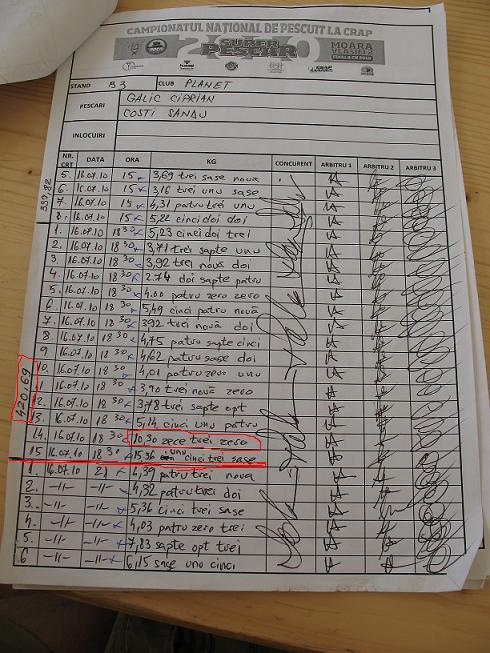 CAMPIONATUL NAȚIONAL DE PESCUIT LA CRAP
SUPER PESCAR
MOARA VLASIEI 2
STAND B3 CLUB PLANET
PESCARI GALIC CIPRIAN
COSTI SANDU
INLOCUIRI
NR. CRT DATA ORA KG CONCURENT ARBITRU 1 ARBITRU 2 ARBITRU 3
339,82
5. 16.07.10 15 3,69 trei sase nouă
6. 16.07.10 15 3,16 trei unu sase
7. 16.07.10 15 4,31 patru trei unu
8. 16.07.10 15 5,22 cinci doi doi
1. 16.07.10 18 30 5,23 cinci doi trei
2. 16.07.10 18 30 3,71 trei sapte unu
3. 16.07.10 18 30 3,92 trei nouă doi
4. 16.07.10 18 30 2.74 doi sapte patru
5. 16.07.10 18 30 4.00 patru zero zero
6 16.07.10 18 30 5,49 cinci patru nouă
7. 16.07.10 18 30 3,92 trei nouă doi
8. 16.07.10 18 30 4,75 patru sapte cinci
9 16.07.10 18 30 4,62 patru sase doi
10. 16.07.10 18 30 4,01 patru zero unu
11 16.07.10 18 30 3,90 trei nouă zero
12. 16.07.10 18 30 3,78 trei sapte opt
13. 16.07.10 18 30 5,14 cinci unu patru
14. 16.07.10 18 30 10,30 zece trei zero
15 16.07.10 18 30 15,36 unu cinci trei sase
420,69
1. 16.07.10 21 4,39 patru trei nouă
2. -//- -//- 4,32 patru trei doi
3. -//- -//- 5,36 cinci trei sase
4. -//- -//- 4,03 patru zero trei
5. -//- -//- 7,83 sapte opt trei
6 -//- -//- 6,15 sase unu cinci